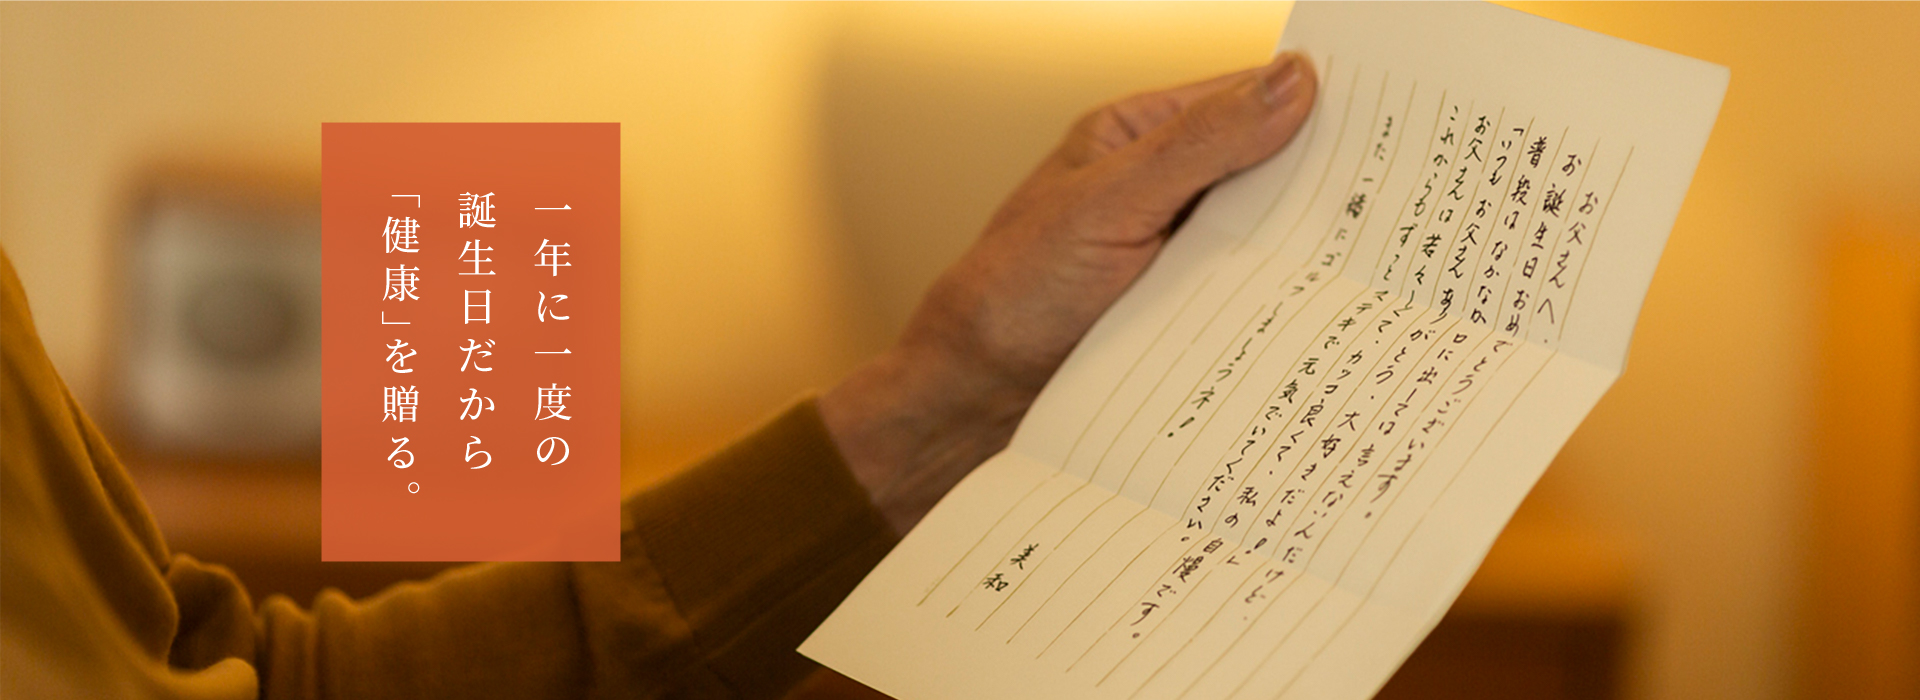 一年に一度の
誕生日だから
「健康」を贈る。
お父さんへ、
お誕生日おめでとうございます。
普段はなかなか口に出しては言えないんだけど、
「いつもお父さんありがとう、大好きだよ!」
お父さんは若々しくて、カッコ良くて、私の自慢です。
これからもずっとステキで元気でいてください。
また、一緒にゴルフしましょうネ!
美和